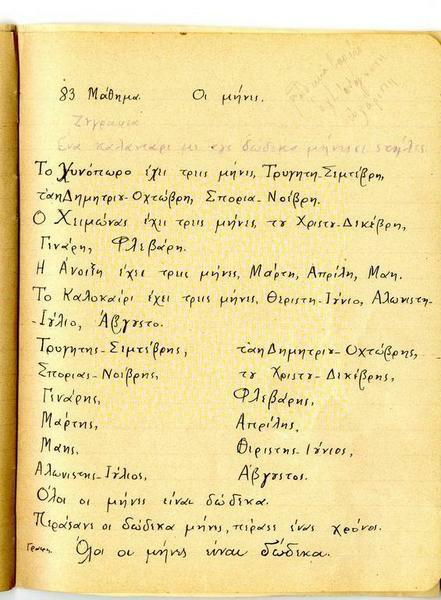 83 Μάθημα. Οι μήνες.
Ζυγραφιά
Ένα καλαντάρι με τς δώδεκα μήνες
Το χυνόπωρο έχει τρεις μήνες, Τρυγητή-Σιμτέβρη,
τ'αηΔημητριυ-Οχτώβρη, Σπορια-Νοέβρη.
Ο Χειμώνας έχει τρεις μήνες, τυ Χριστυ-Δεκέβρη,
Γενάρη, Φλεβάρη.
Η Άνοιξη έχει τρεις μήνες, Μάρτη, Απρίλη, Μαη.
Το Καλοκαίρι έχει τρεις μήνες, Θεριστή-Ιύνιο, Αλωνιστή-
Ιύλιο, Άβγυστο.
Τρυγητής-Σιμτέβρης, τ'αηΔημητριυ-Οχτώβρης,
Σποριας-Νοέβρης, τυ Χριστυ-Δεκέβρης,
Γενάρης, Φλεβάρης,
Μάρτης, Απρίλης,
Μαης, Θεριστής-Ιύνιος,
Αλωνιστής-Ιύλιος, Άβγυστος.
Όλοι οι μήνες είναι δώδεκα.
Περάσανε οι δώδεκα μήνες, πέρασε ένας χρόνος.
Γραφή. Όλοι οι μήνες είναι δώδεκα.